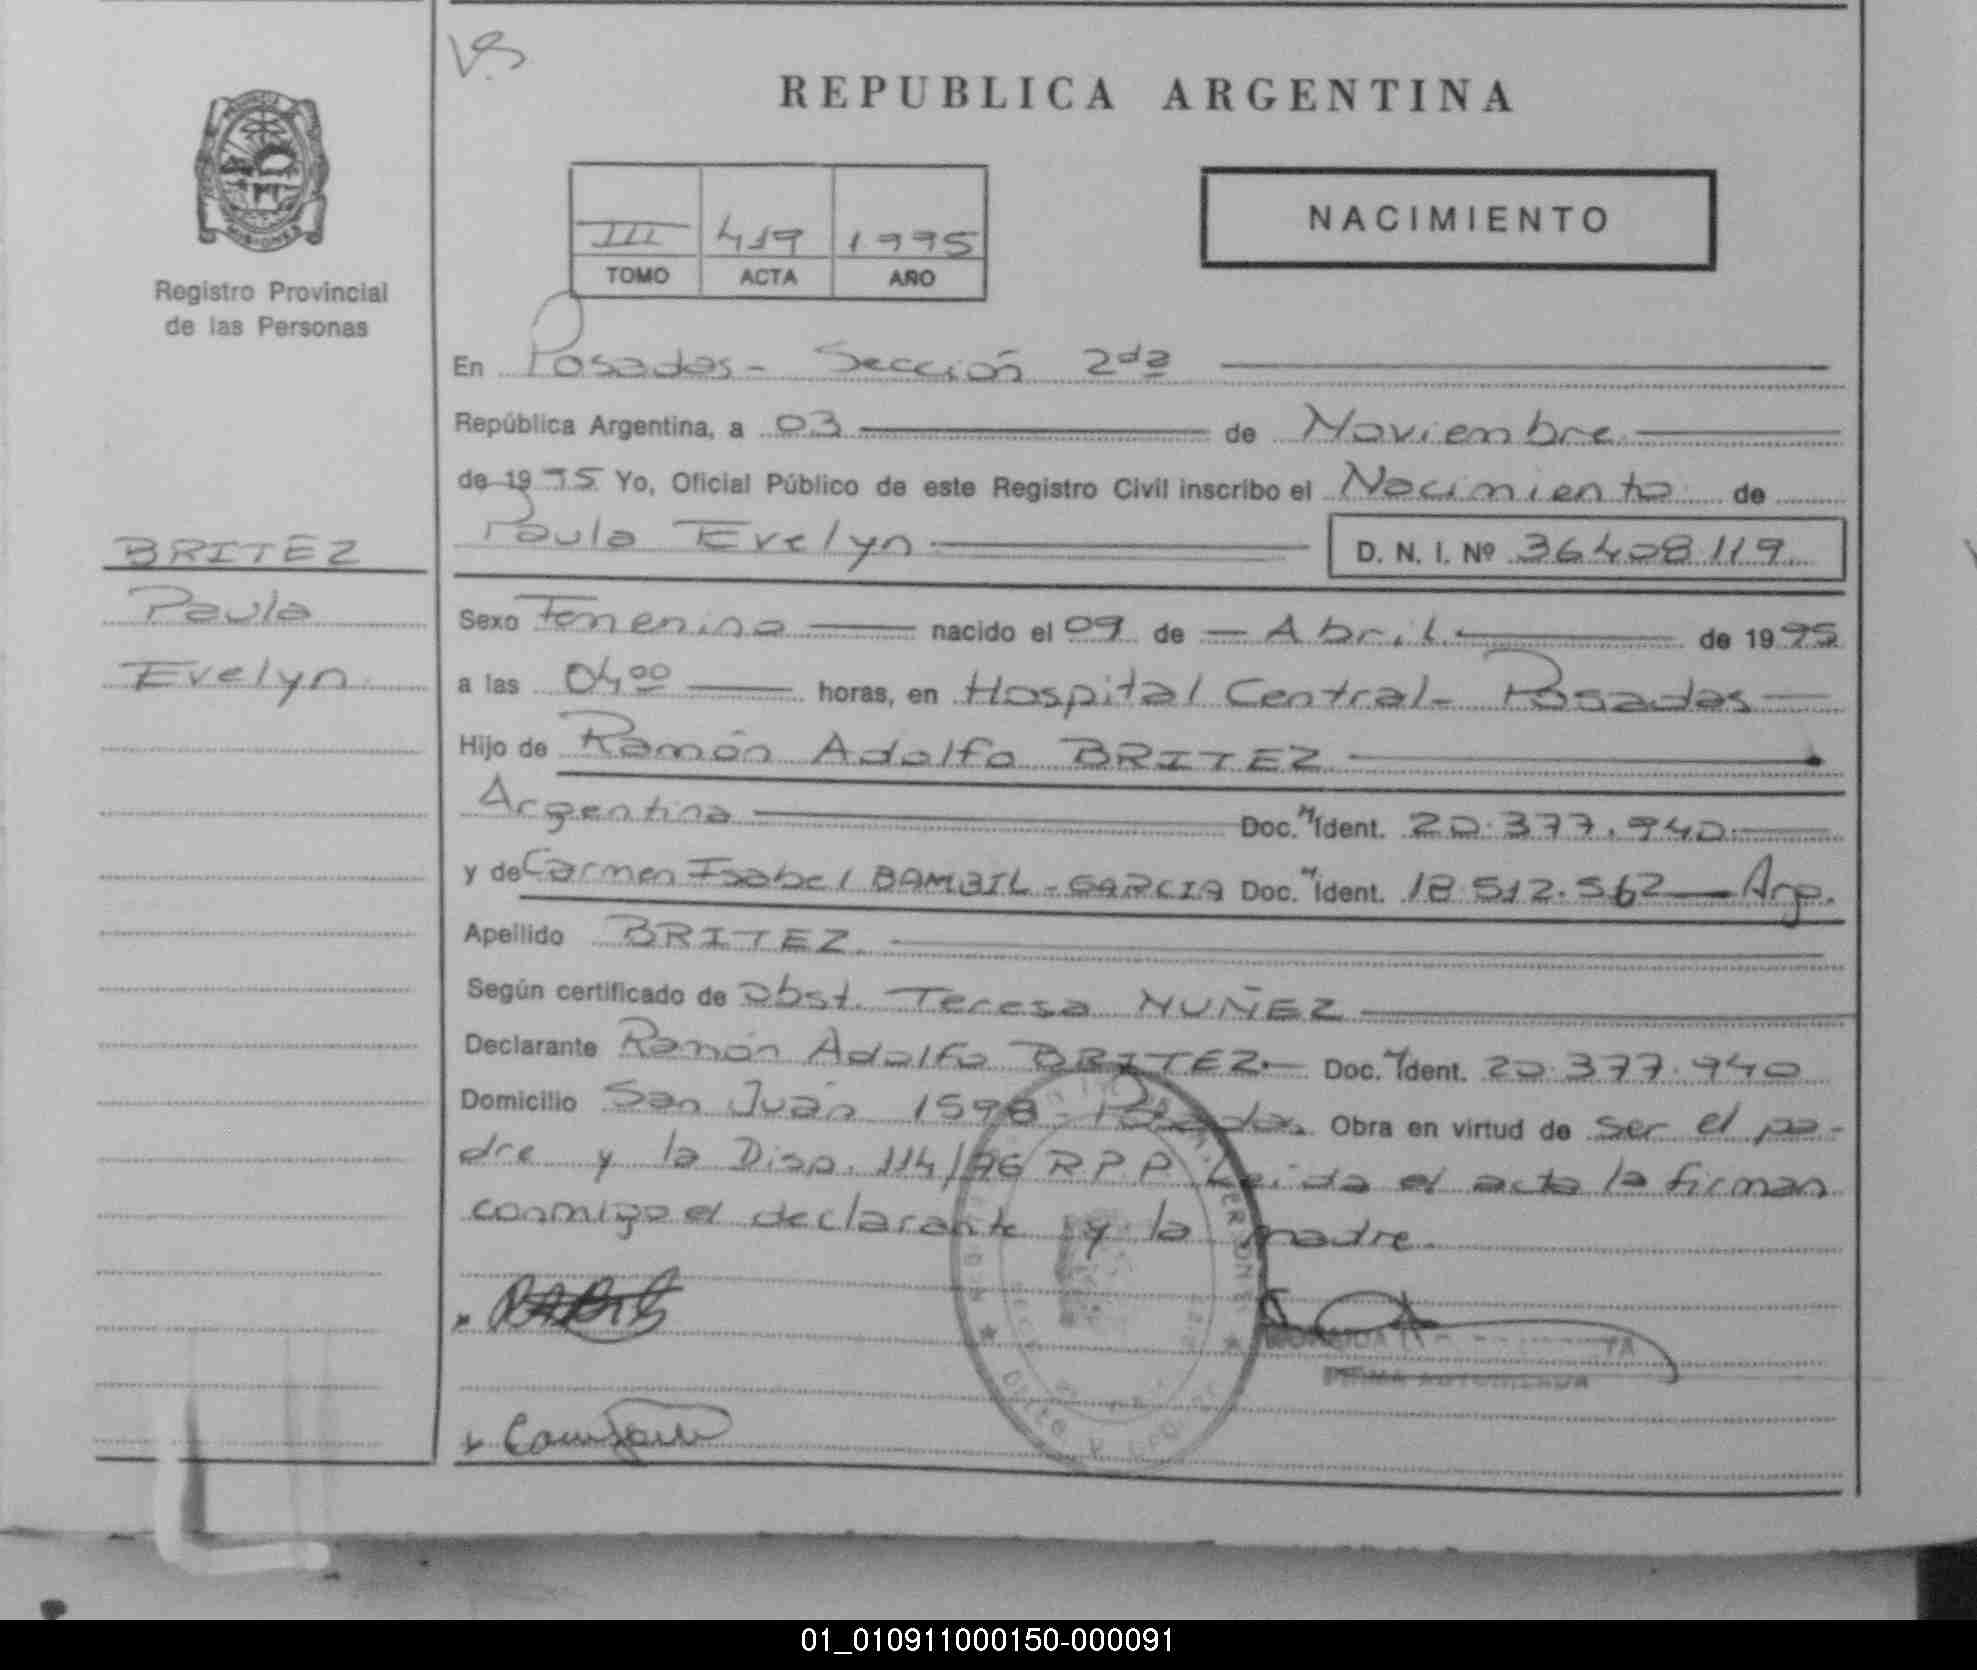 VS
REPUBLICA ARGENTINA
MISIONES
Registro Provincial
de las Personas
III 419 1995
TOMO ACTA AÑO
NACIMIENTO
En Posadas - Sección 2da
República Argentina, a 03 de Noviembre
de 1995 Yo, Oficial Público de este Registro Civil inscribo el Nacimiento de
Paula Evelyn D. N. I. Nº 36408119
BRITEZ
Paula
Evelyn
Sexo Femenino nacido el 09 de Abril de 1995
a las 04 00 horas, en Hospital Central - Posadas
Hijo de Ramón Adolfo BRITEZ
Argentina Doc. M Ident. 20.377.940
y de Carmen Isabel BAMBIL - GARCIA Doc. M Ident. 18.512.562 Arg.
Apellido BRITEZ
Según certificado de Obst. Teresa NUÑEZ
Declarante Ramón Adolfo BRITEZ Doc. M Ident. 20.377.940
Domicilio San Juan 1598 - Posadas Obra en virtud de ser el pa-
dre y la Disp. 114/96 R P P. Leida el acta la firman
conmigo el declarante y la madre.
FIRMA AUTORIZADA
01_010911000150-000091